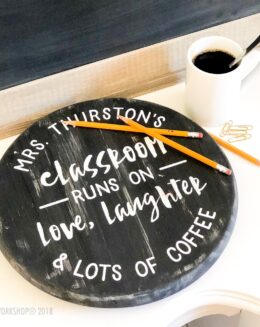 MRS. THURSTON'S
Classroom
RUNS ON
Love, Laughter
& LOTS OF COFFEE
WORKSHOP© 2018